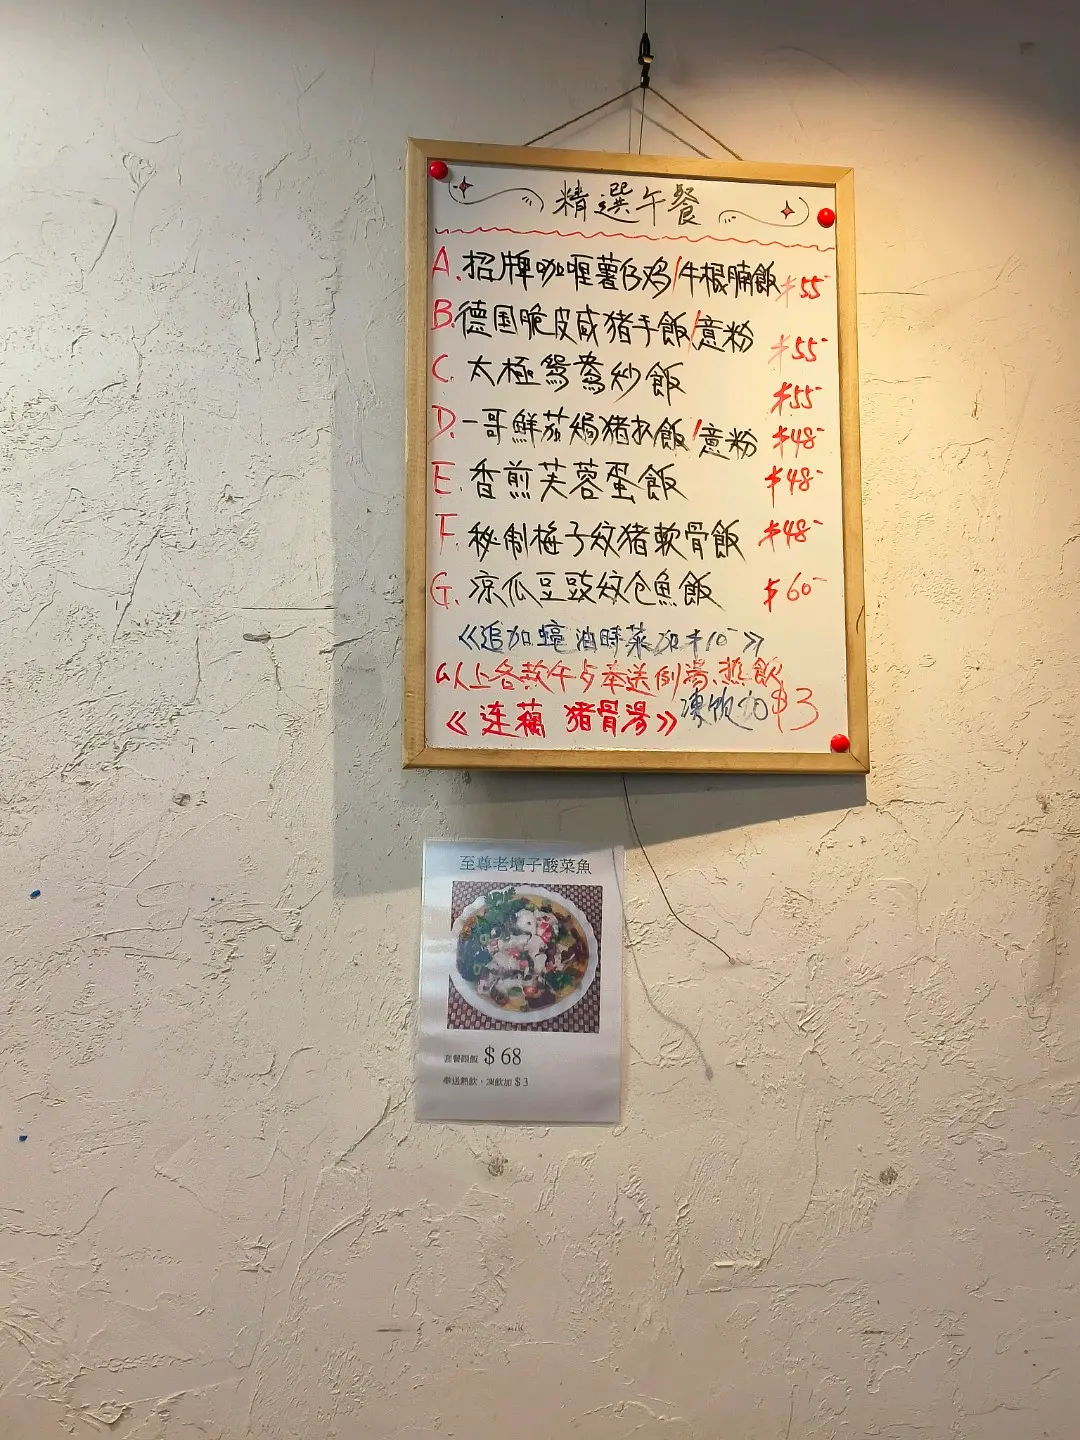 精選午餐
A.招牌咖喱薯仔鸡/牛根腩飯 $55-
B.德国脆皮咸猪手飯/意粉 $55-
C.太極鴛鴦炒飯 $55-
D.一哥鮮茄焗猪扒飯/意粉 $48-
E.香煎芙蓉蛋飯 $48-
F.秘制梅子炆猪軟骨飯 $48-
G.涼瓜豆豉炆仓魚飯 $60-
《追加蠔油時菜加$10-》
以上各款午歺奉送例湯、熱飲
《连藕 猪骨湯》凍飲加$3
至尊老壇子酸菜魚
套餐跟飯 $68
奉送熱飲，凍飲加$3